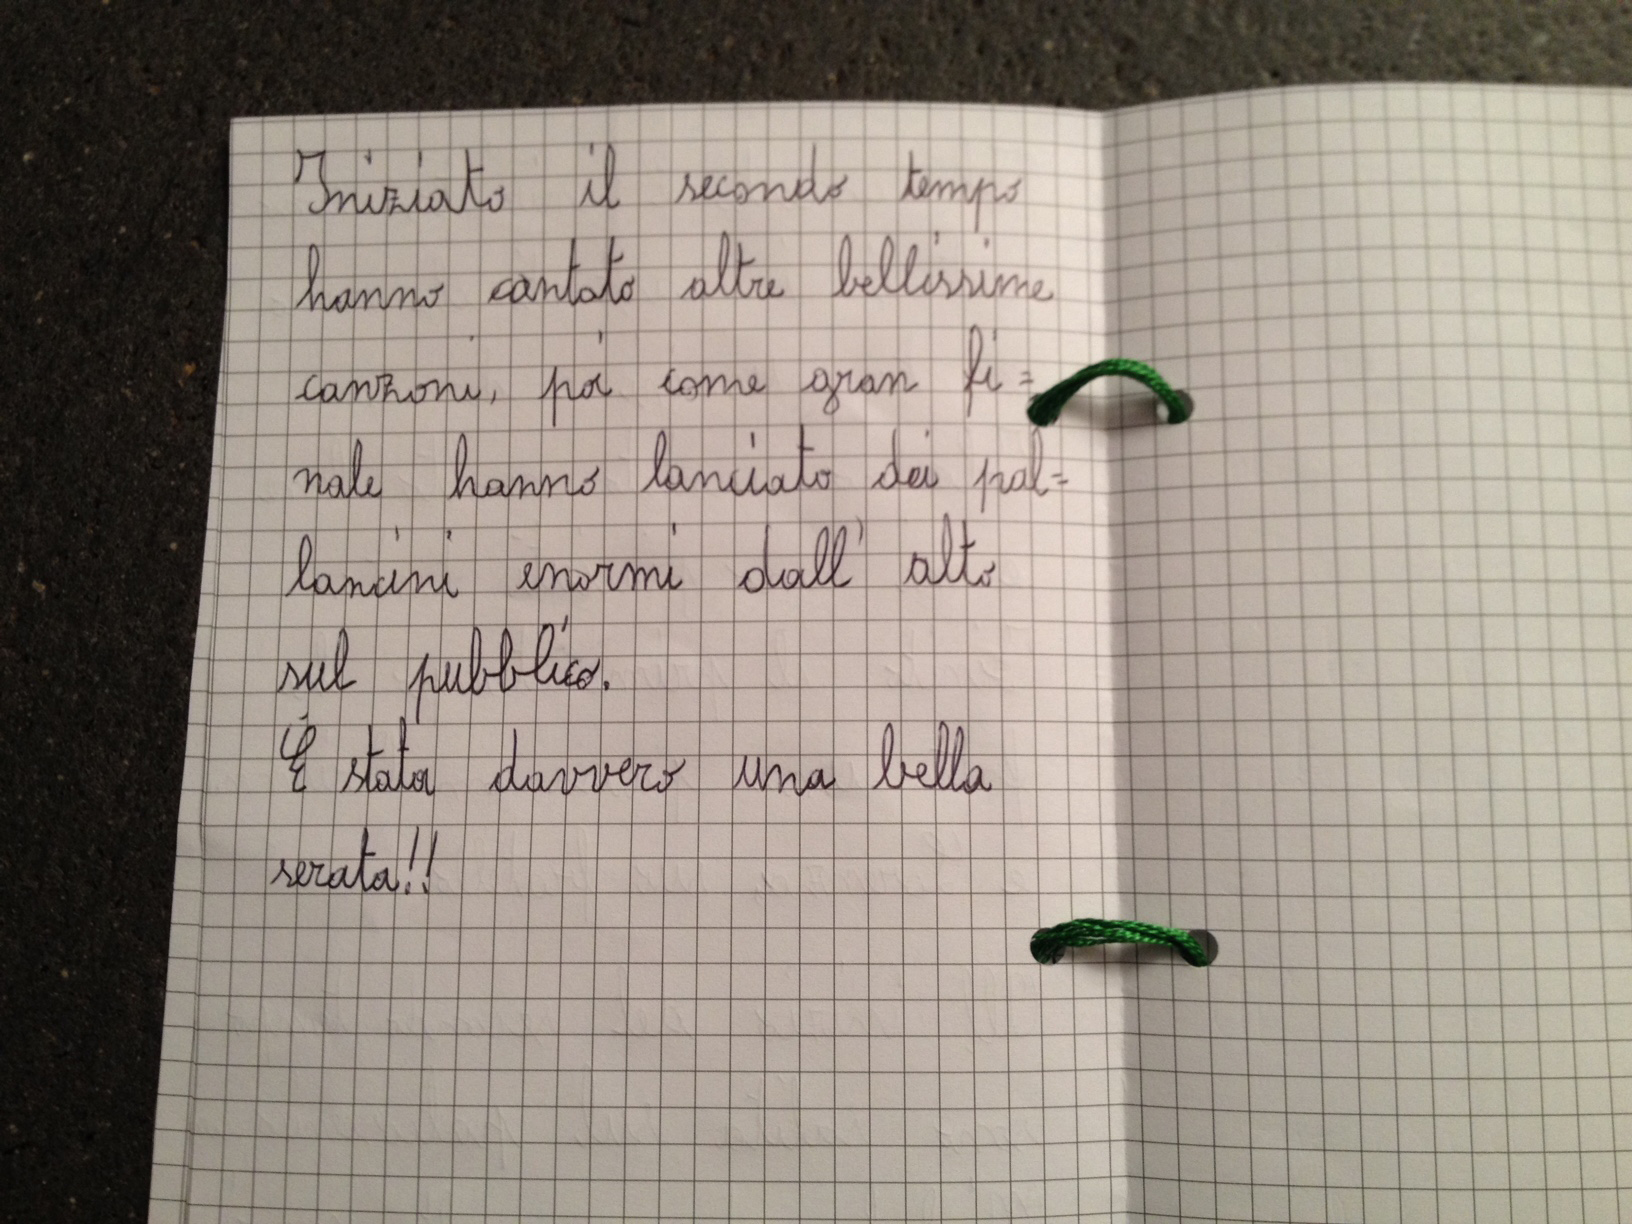 Iniziato il secondo tempo
hanno cantato altre bellissime
canzoni, poi come gran fi=
nale hanno lanciato dei pal=
lancini enormi dall' alto
sul pubblico.
È stata davvero una bella
serata!!